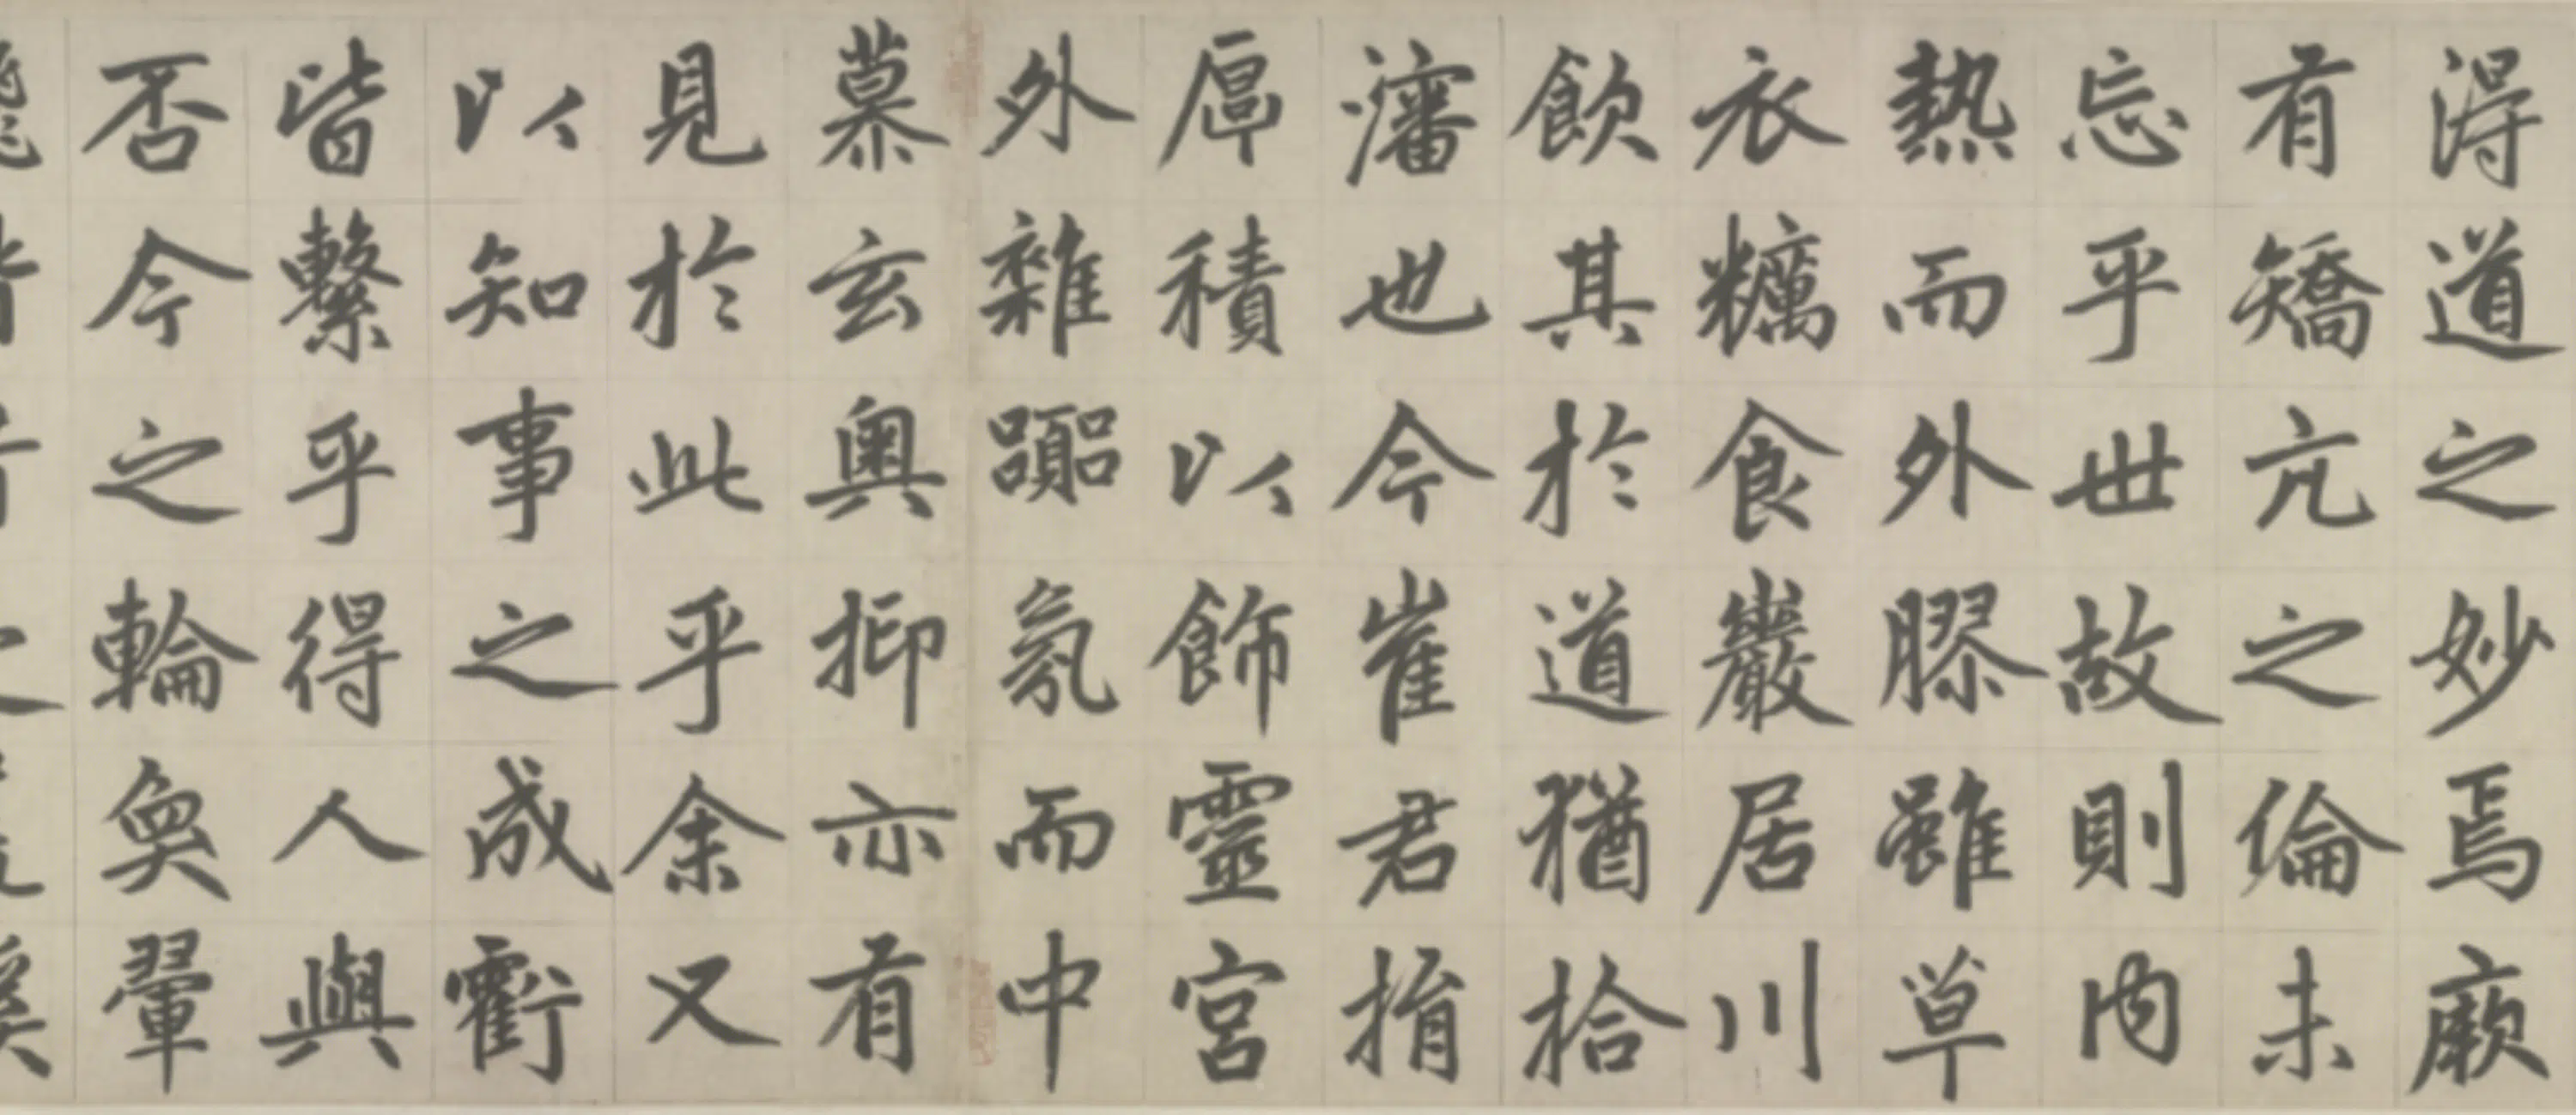 得道之妙焉厥
有矯亢之倫未
忘乎世故則內
熱而外膠雖草
衣糲食巖居川
飲其於道猶拾
瀋也今崔君捐
厚積以飾靈宮
外雜嚣氛而中
慕玄奧抑亦有
見於此乎余又
以知事之成虧
皆繫乎得人與
否今之輪奐翬